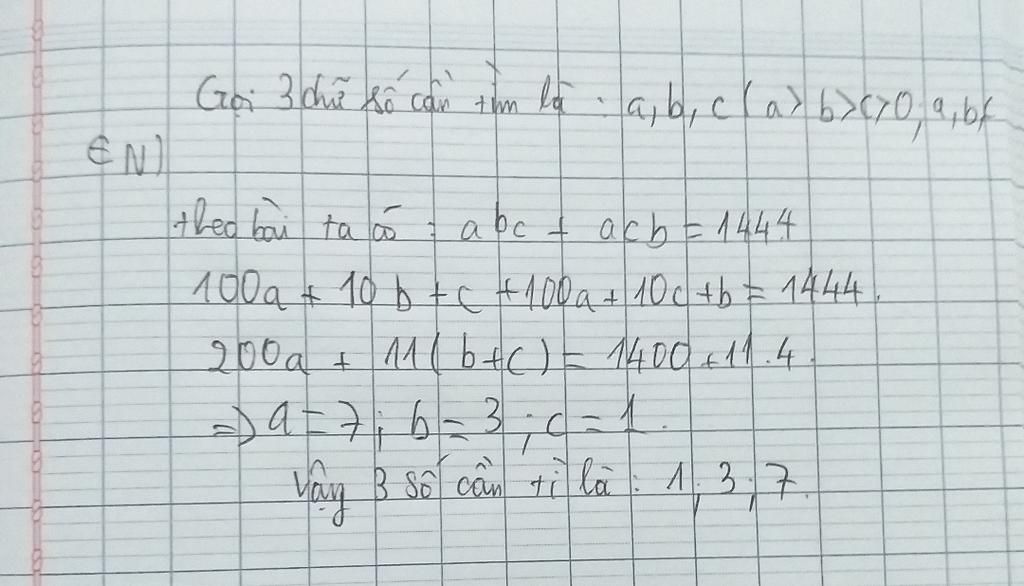 Gọi 3 chữ số cần tìm là : a, b, c ( a > b > c > 0, a, b, c
∈ N)
theo bài ta có : abc + acb = 1444
100a + 10b + c + 100a + 10c + b = 1444.
200a + 11(b+c) = 1400 + 11.4.
=> a = 7 ; b = 3 ; c = 1.
Vậy 3 số cần tì là : 1, 3, 7.